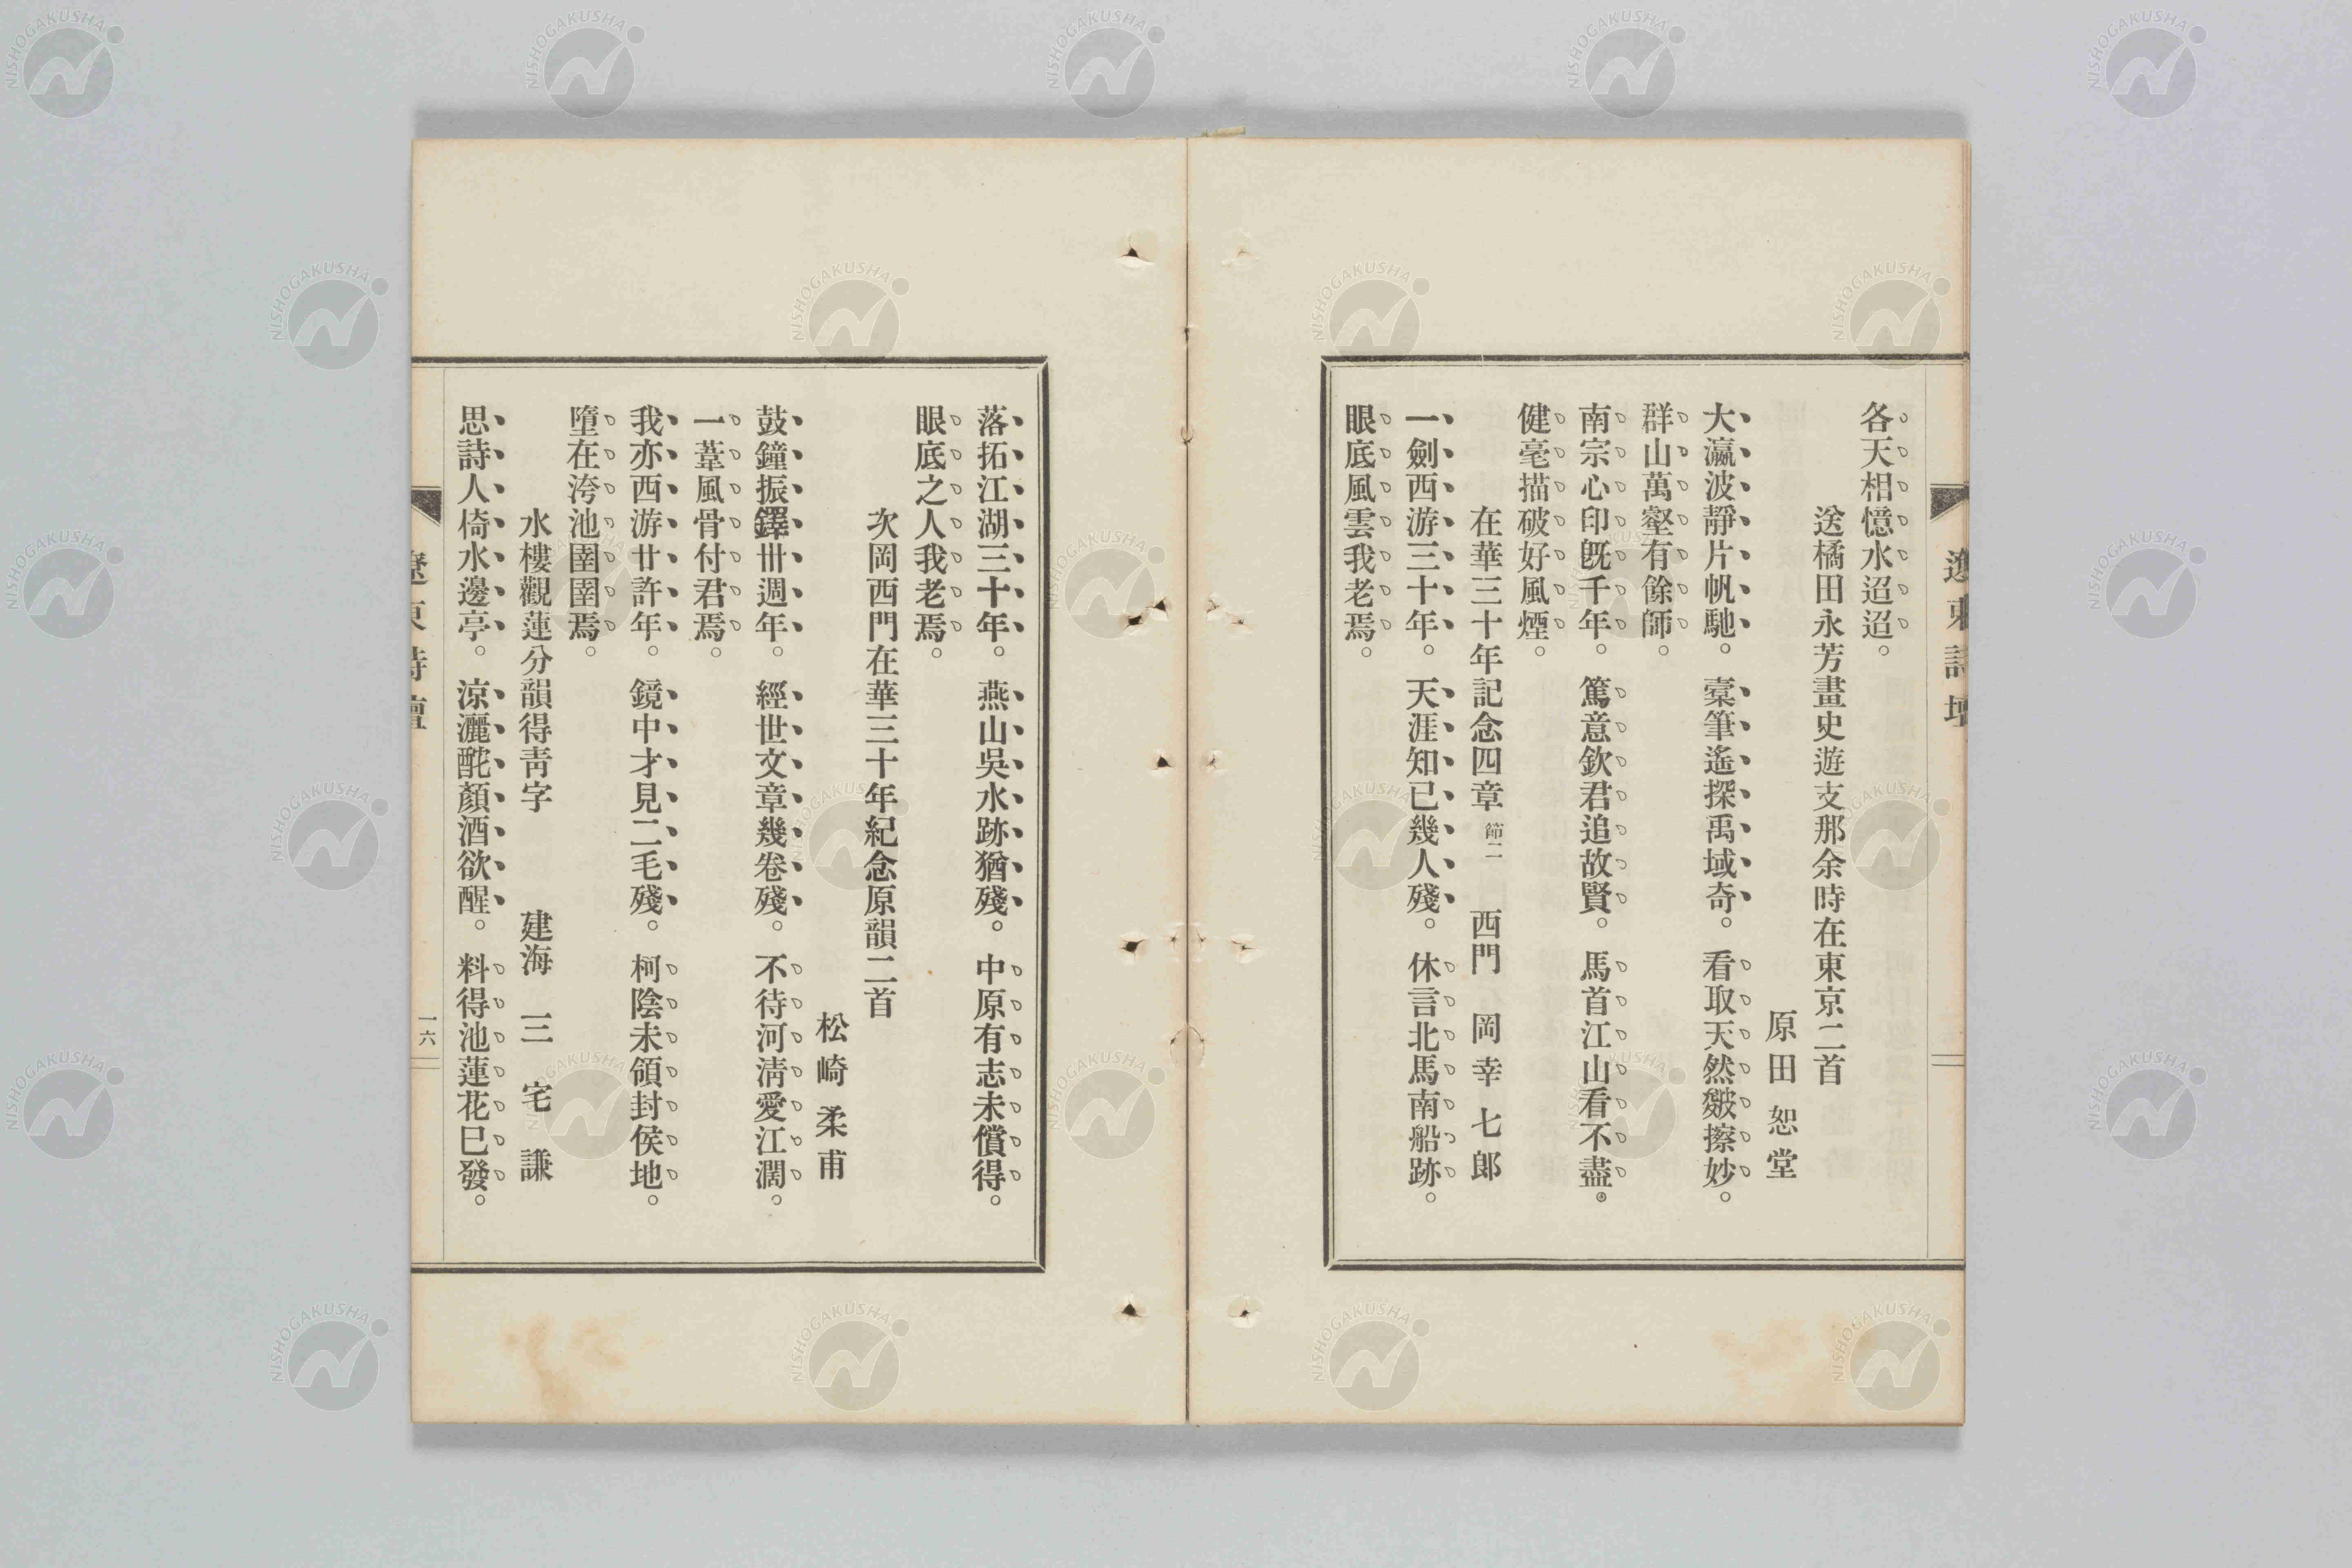 遼東詩壇
各天相憶水迢迢。
送橘田永芳畫史遊支那余時在東京二首
原田恕堂
大瀛波靜片帆馳。槖筆遙探禹域奇。看取天然皴擦妙。
群山萬壑有餘師。
南宗心印旣千年。篤意欽君追故賢。馬首江山看不盡。
健毫描破好風煙。
在華三十年記念四章 節二 西門 岡幸七郎
一劍西游三十年。天涯知已幾人殘。休言北馬南船跡。
眼底風雲我老焉。
落拓江湖三十年。燕山吳水跡猶殘。中原有志未償得。
眼底之人我老焉。
次岡西門在華三十年紀念原韻二首
松崎柔甫
鼓鐘振鐸卅週年。經世文章幾卷殘。不待河淸愛江濶。
一葦風骨付君焉。
我亦西游廿許年。鏡中才見二毛殘。柯陰未領封侯地。
墮在洿池圉圉焉。
水樓觀蓮分韻得靑字 建海 三宅謙
思詩人倚水邊亭。涼灑酡顏酒欲醒。料得池蓮花巳發。
遼東詩壇
一六
NISHOGAKUSHA